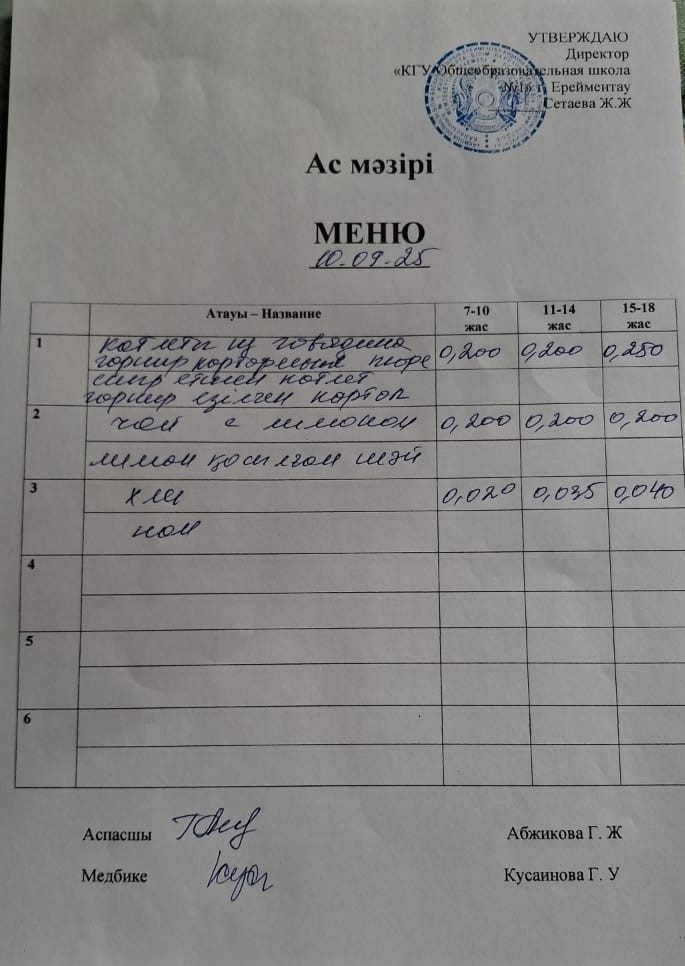 УТВЕРЖДАЮ
Директор
«КГУ Общеобразовательная школа
№1» г. Ерейментау
Сетаева Ж.Ж
Ас мәзірі
МЕНЮ
10.09.25
Атауы – Название 7-10 жас 11-14 жас 15-18 жас
1 котлеты из говядина
гарнир картофельный пюре 0,200 0,200 0,250
сиыр етінен котлет
гарнир езілген картоп
2 чай с лимоном 0,200 0,200 0,200
лимон қосылған шәй
3 хлеб 0,020 0,035 0,040
нан
4
5
6
Аспасшы Абжикова Г. Ж
Медбике Кусаинова Г. У